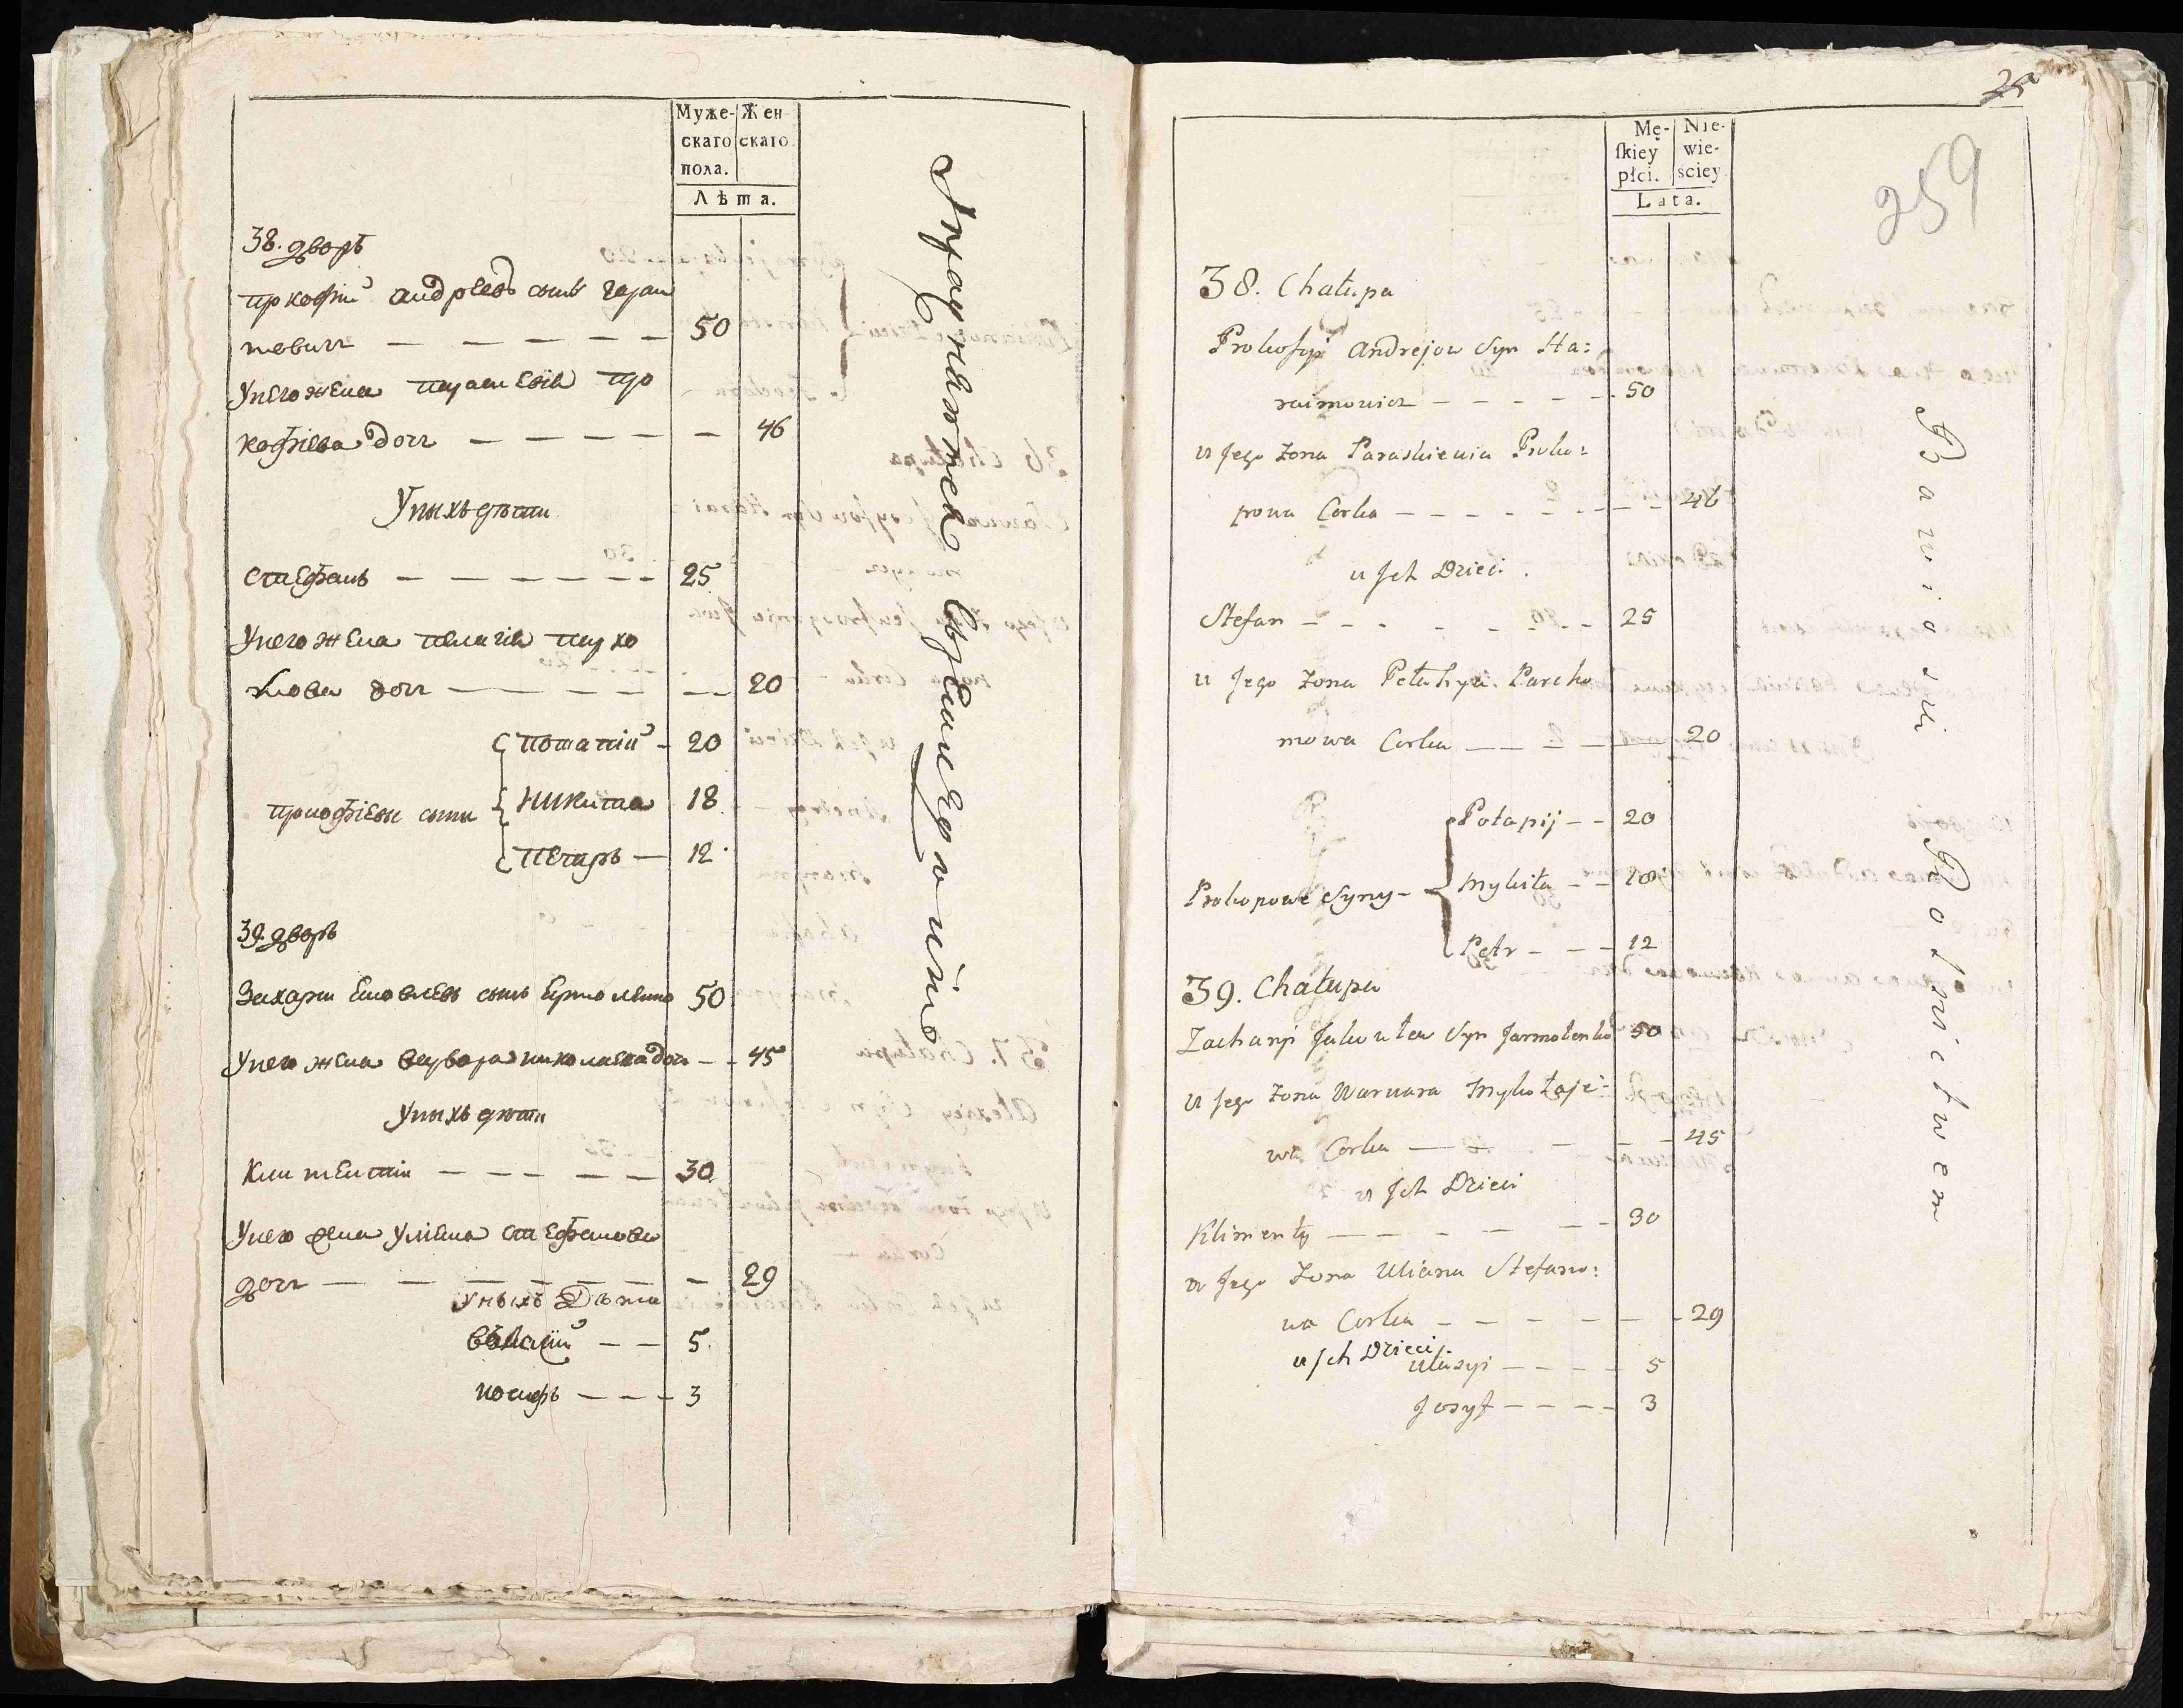 Муже-
скаго
пола.
Жен
скаго
Лѣта.
38. дворъ
прокофiй андреевъ сынъ гараи
мовичъ — — — — — — 50
Унего жена параскевiя про
кофiева дочь — — — — — — 46
Унихъ дѣти
Стефанъ — — — — — — 25
Унего жена пелагiя пархо
мова дочь — — — — — — 20
потапiй - 20
прокофiевы сыны
никита 18
петръ — 12
39. дворъ
Захарiй яковлевъ сынъ ермоленко 50
Унего жена варвара николаева дочь - - 45
Унихъ дѣти
климентiй — — — — — 30
Унего жена улiяна стефанова
дочь — — — — — — — 29
Унихъ Дѣти
— — 5
иосифъ — — — 3
25
259
Mę-
ſkiey
płci.
Nie-
wie-
sciey
Lata.
38. Chałupa
Prokofyi Andrejow Syn Ha:
raimowicz — — — — — 50
u Jego Żona Paraskiewia Proko:
powa Corka — — — — — — — — 46
u Jch Dzieci.
Stefan — — - - - - - 25
u Jego Żona Pełahyia Parcho
mowa Corka — — — — — 20
Potapij — - 20
Prokopowe Syny -
Mykita - - 18
Petr - - - 12
39. Chałupa
Zacharyi Jakowlew Syn Jarmolenko 50
u Jego Żona Warwara Mykołaje-
wa Corka — — - - - 45
u Jch Dzieci
Klimenty — — - - - - - 30
u Jego Żona Uliana Stefano:
wa Corka - - - - - - 29
u Jch Dzieci
Ułasyi - - - - 5
Josyf - - - - 3
Bawiaszi Połnictwem